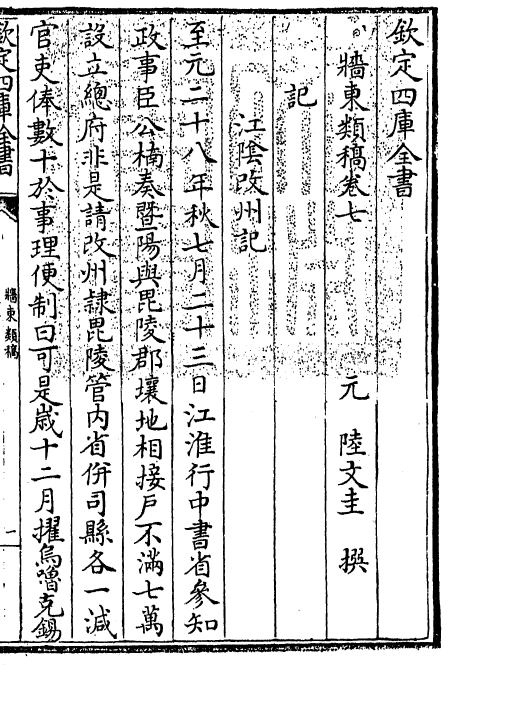 欽定四庫全書
牆東類稿卷七
元 陸文圭 撰
記
江陰改州記
至元二十八年秋七月二十三日江淮行中書省參知
政事臣公楠奏暨陽與毘陵郡壤地相接戶不滿七萬
設立總府非是請改州隷毘陵管内省併司縣各一減
官吏俸數十於事理便制曰可是歳十二月擢烏嚕克錫
欽定四庫全書
牆東類稿
一